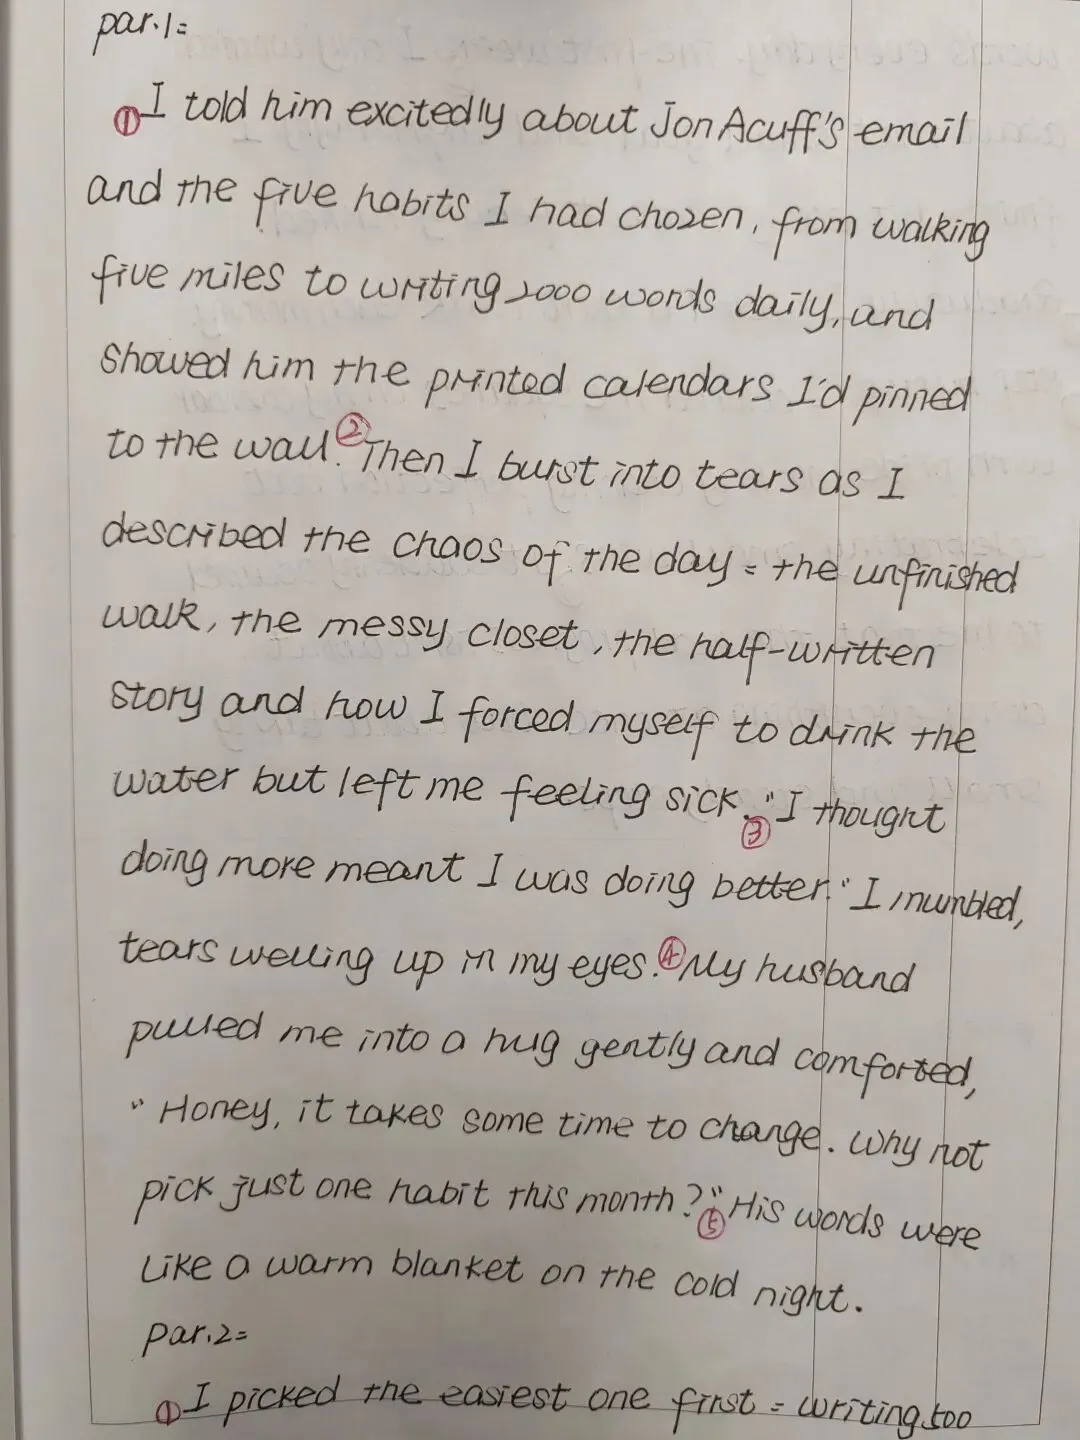 par.1=
①I told him excitedly about Jon Acuff's email
and the five habits I had chozen, from walking
five miles to writing 2000 words daily, and
showed him the printed calendars I'd pinned
to the wall.②Then I burst into tears as I
described the chaos of the day = the unfinished
walk, the messy closet, the half-written
story and how I forced myself to drink the
water but left me feeling sick.③"I thought
doing more meant I was doing better."I mumbled,
tears welling up in my eyes.④My husband
pulled me into a hug gently and comforted,
"Honey, it takes some time to change. Why not
pick just one habit this month?"⑤His words were
like a warm blanket on the cold night.
par.2=
①I picked the easiest one first = writing 500